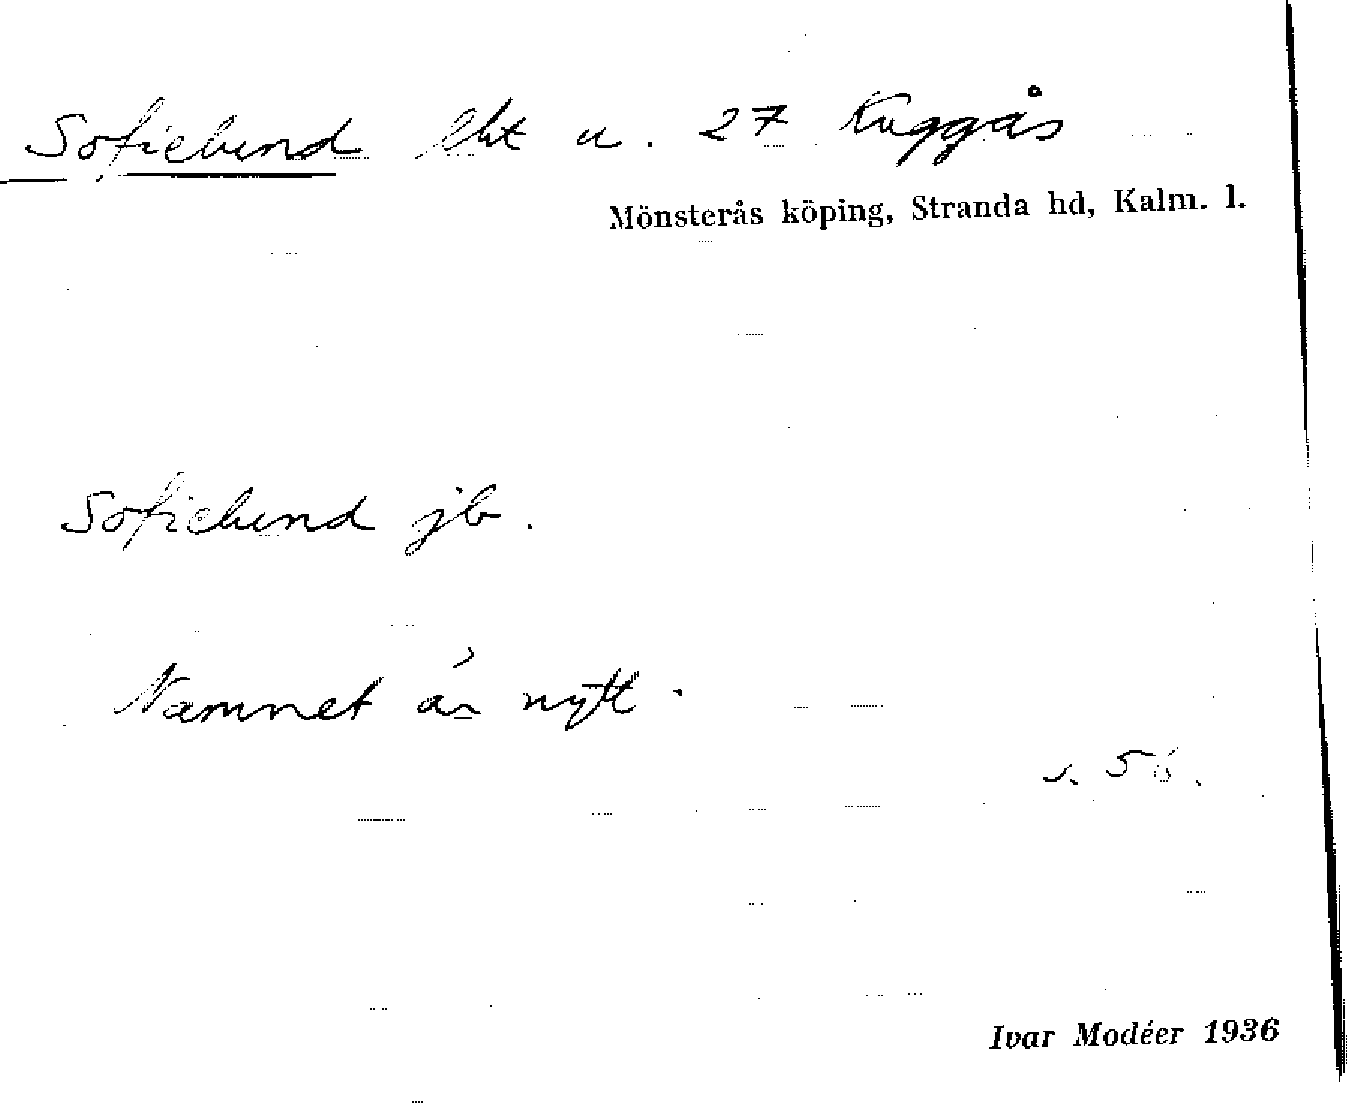 Sofielund lht u. 27 Kuggås
Mönsterås köping, Stranda hd, Kalm. l.
Sofielund jb.
Namnet är nytt.
s. 56.
Ivar Modéer 1936